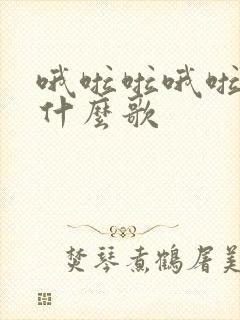 哦啦啦哦啦
什麼歌
焚琴煮鶴屠美